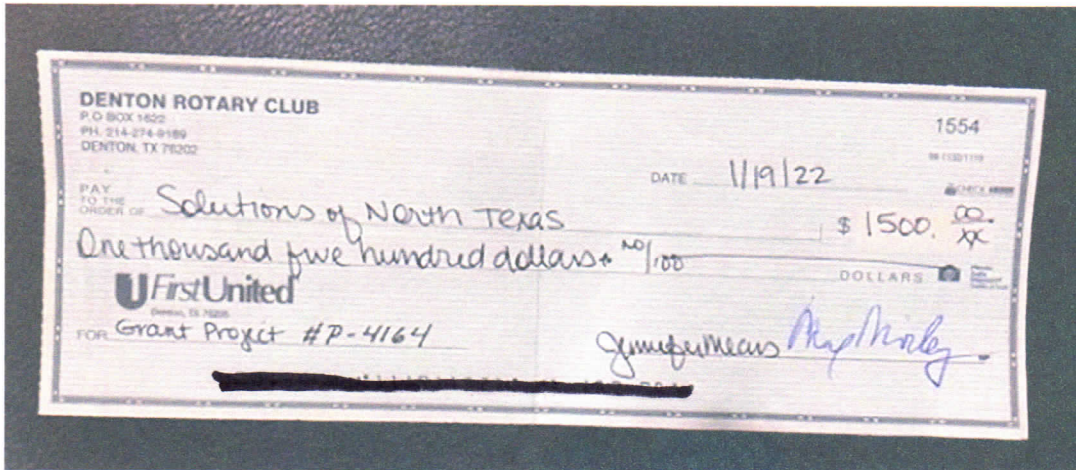 DENTON ROTARY CLUB
P.O BOX 1622
PH. 214-274-9189
DENTON, TX 76202
1554
DATE 1/19/22
PAY
TO THE
ORDER OF Solutions of North Texas
$ 1500. 00/XX
One thousand five hundred dollars + NO/100
DOLLARS
First United
Denton, TX 76205
FOR Grant Project #P-4164
Jennifer Means